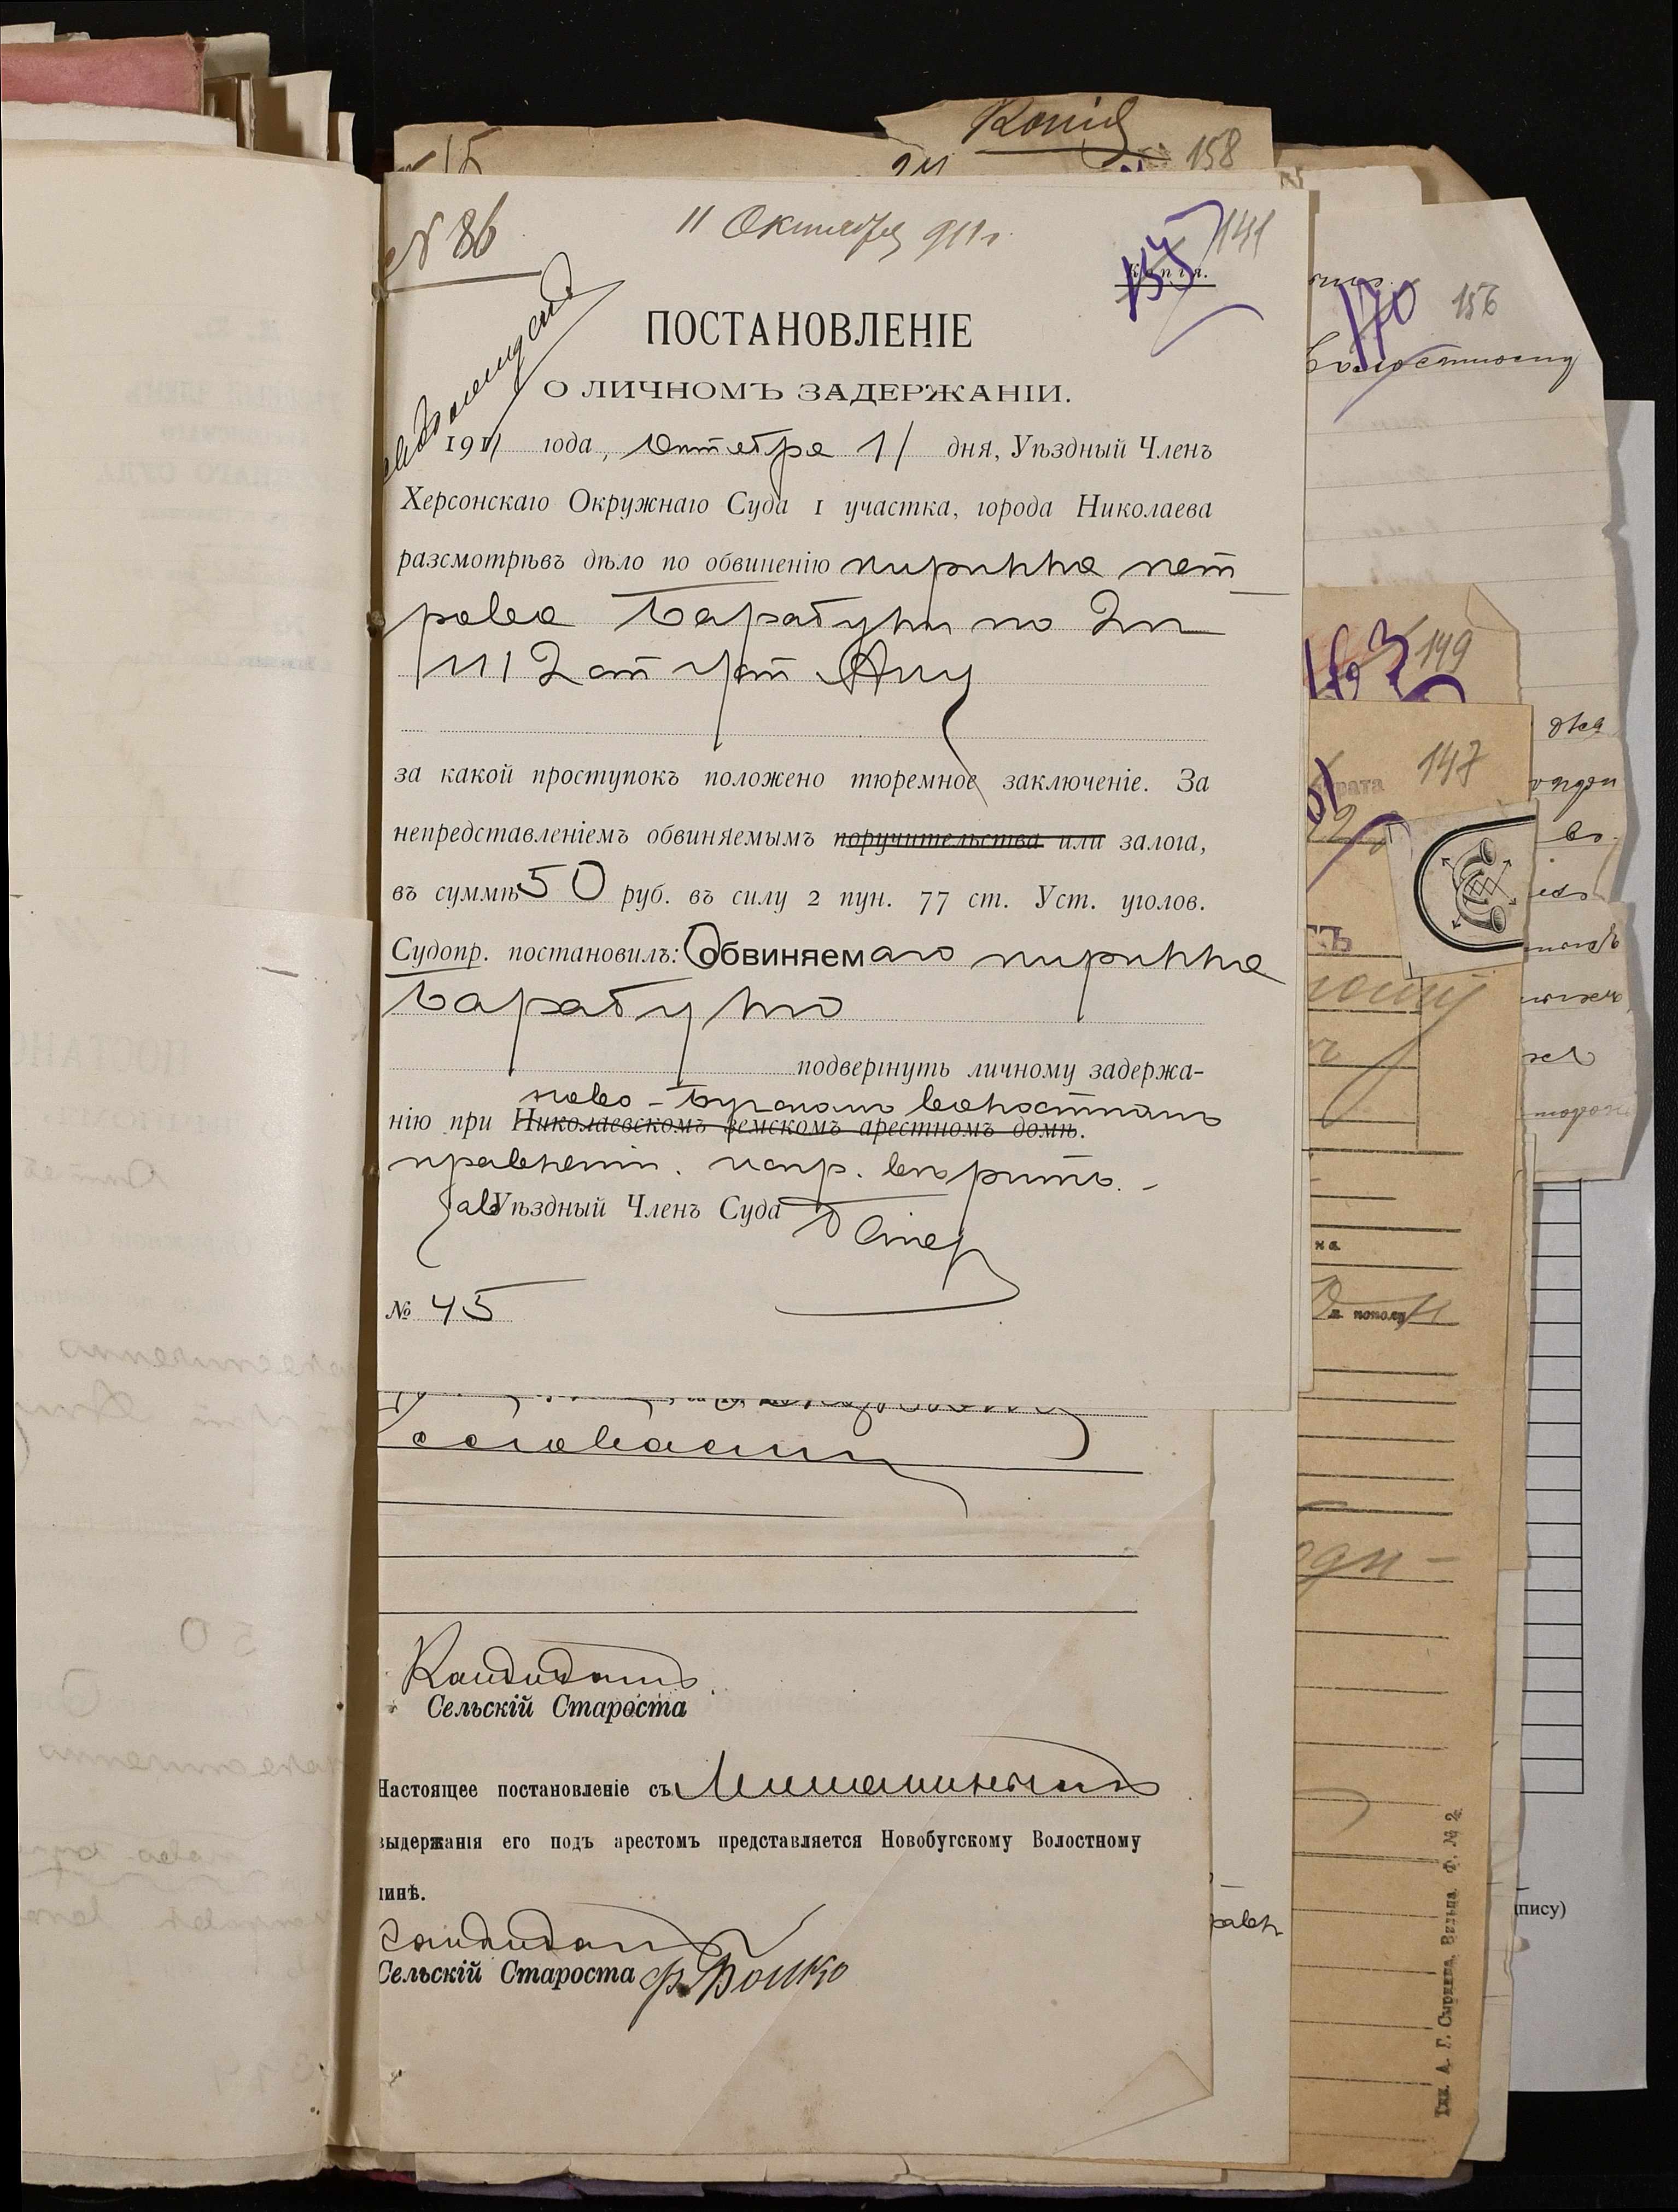 Копія
158
№ 86
11 Октября 911 г.
141
155
Копія.
ПОСТАНОВЛЕНІЕ
О ЛИЧНОМЪ ЗАДЕРЖАНІИ.
1911 года, Октября 11 дня, Уѣздный Членъ
Херсонскаго Окружнаго Суда 1 участка, города Николаева
разсмотрѣвъ дѣло по обвиненію Кирилла Пет
рова Барабули по 2 п
1112 ст Уст Акц
за какой проступокъ положено тюремное заключеніе. За
непредставленіемъ обвиняемымъ поручительства или залога,
въ суммѣ 50 руб. въ силу 2 пун. 77 ст. Уст. уголов.
Судопр. постановилъ: Обвиняемаго Кирилла
Барабулю
подвергнуть личному задержа-
Ново-Бугскомъ волостномъ
нію при Николаевскомъ земскомъ арестномъ домѣ.
правленіи. испр. вѣрить. -
Уѣздный Членъ Суда
№ 45
Кандидатъ
Сельскій Староста
Настоящее постановленіе съ
выдержанія его подъ арестомъ представляется Новобугскому Волостному
инѣ.
Кандидатъ
Сельскій Староста Ф. Бойко
170
156
Волостному
163
149
147
рата
въ
на.
п. пополу
Тип. А. Г. Сыркина, Вильна. Ф. № 2.
пису)